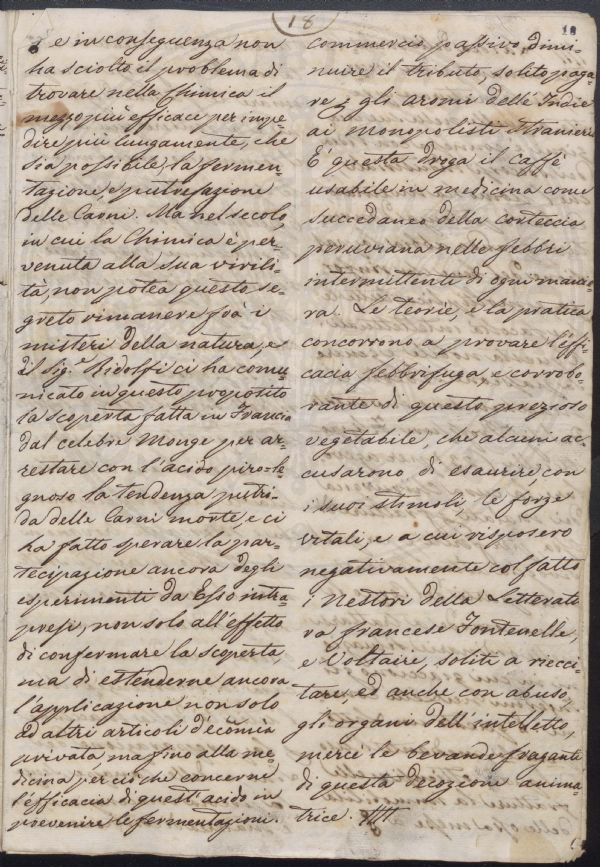 18
18
e in conseguenza non
ha sciolto il problema di
trovare nella Chimica il
mezzo più efficace per impe=
dire più lungamente, che
sia possibile, la fermen=
tazione, e putrefazione
delle Carni. Ma nel secolo,
in cui la Chimica è per=
venuta alla sua virili=
tà, non potea questo se=
greto rimanere frà i
misteri della natura, e
il Sig.r Ridolfi ci ha comu=
nicato in questo proposito
la scoperta fatta in Francia
dal celebre Monge per ar=
restare con l'acido pirole=
gnoso la tendenza putri=
da delle Carni morte, e ci
ha fatto sperare la par=
tecipazione ancora degli
esperimenti da Esso intra=
presi, non solo all'effetto
di confermare la scoperta,
ma di estenderne ancora
l'applicazione non solo
ad altri articoli d'ecõmia
privata, ma fino alla me=
dicina per ciò che concerne
l'efficacia di quest'acido in
prevenire le fermentazioni.
commercio passivo, dimi=
nuire il tributo, solito paga=
re p gli aromi delle Indie
ai monopolisti stranieri
E' questa droga il caffè
usabile in medicina come
succedaneo della corteccia
peruviana nelle febbri
intermittenti di ogni manie=
ra. Le teorie, e la pratica
concorrono a provare l'effi=
cacia febbrifuga, e corrobo=
rante di questo prezioso
vegetabile, che alcuni ac=
cusarono di esaurire, con
i suoi stimoli, le forze
vitali, e a cui risposero
negativamente col fatto
i Nestori della Letteratu
ra francese Fontenelle,
e Voltaire, soliti a riecci=
tare, ed anche con abuso,
gli organi dell'intelletto,
mercè le bevande fraganti
di questa decozione anima=
trice.